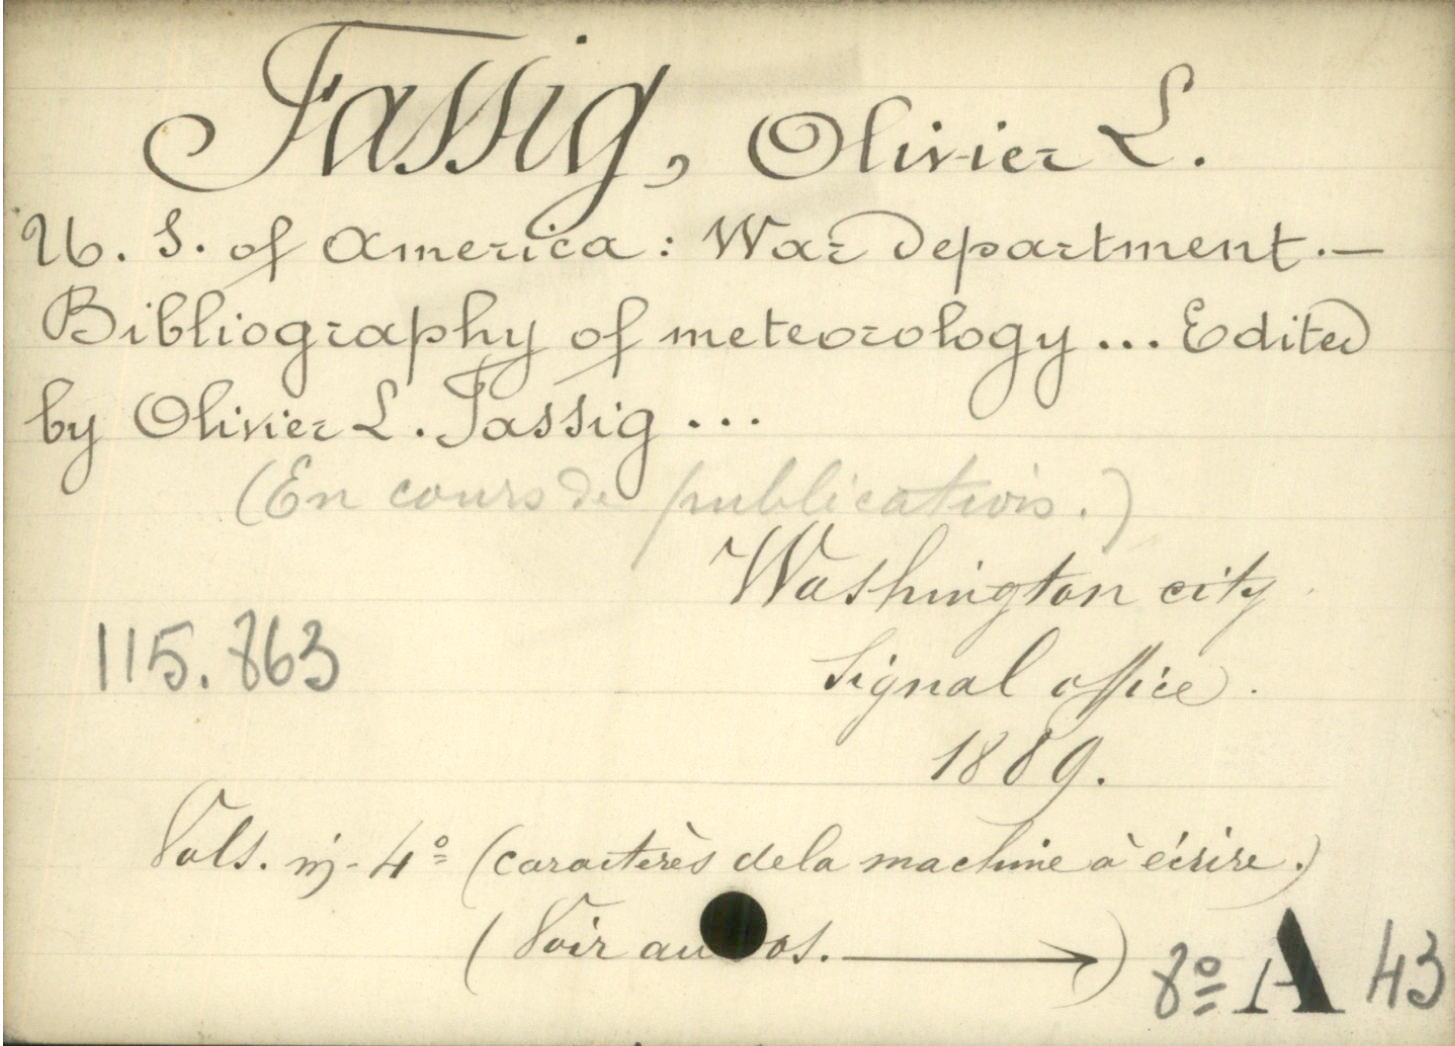 Fassig, Olivier L.
U. S. of America: War department.—
Bibliography of meteorology... Edited
by Olivier L. Fassig...
(En cours de publication.)
Washington city
Signal office.
1889.
115.863
Vols. in-4º (caractères de la machine à écrire.)
(Voir au os. →)
8º A 43